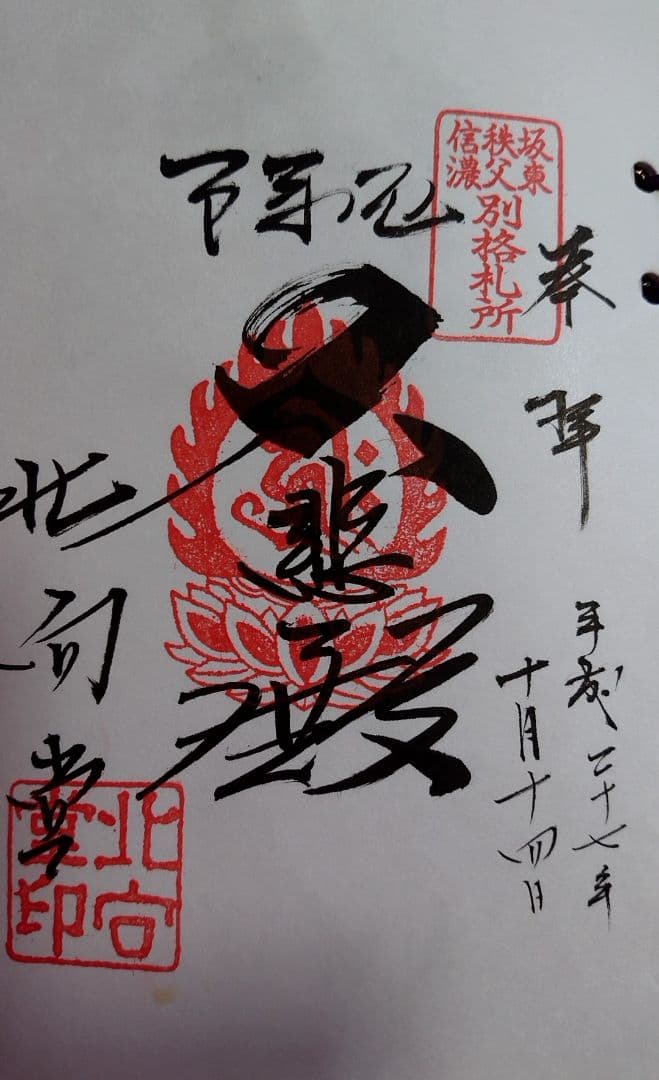 奉拝
坂東
秩父
信濃
別格札所
平成二十七年
十月十四日
大悲殿
北向堂
北向
堂印